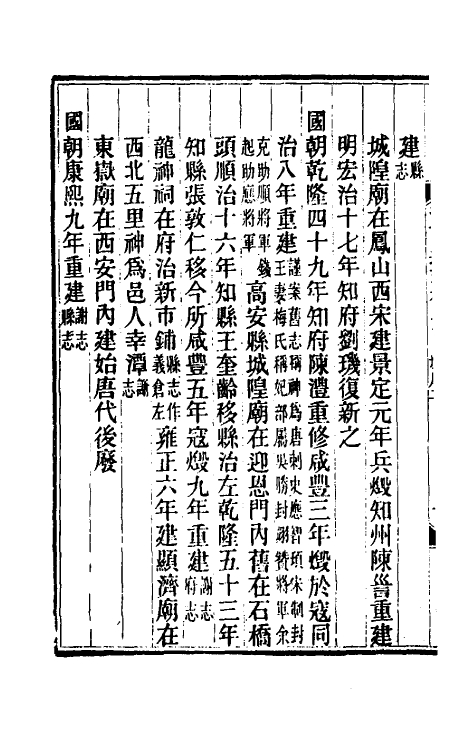 建縣志
城隍廟在鳳山西宋建景定元年兵燬知州陳𥫃重建
明宏治十七年知府劉璣復新之
國朝乾隆四十九年知府陳澧重修咸豐三年燬於寇同
治八年重建謹案舊志稱神爲唐刺史應智頊宋制封王妻梅氏稱妃部屬吳勝封翊贊將軍余
克助順將軍錢起助應將軍高安縣城隍廟在迎恩門內舊在石橋
頭順治十六年知縣王奎齡移縣治左乾隆五十三年
知縣張敦仁移今所咸豐五年寇燬九年重建謝志府志
龍神祠在府治新市鋪縣志作義倉左雍正六年建顯濟廟在
西北五里神爲邑人幸潭謝志
東嶽廟在西安門內建始唐代後廢
國朝康熙九年重建謝志縣志